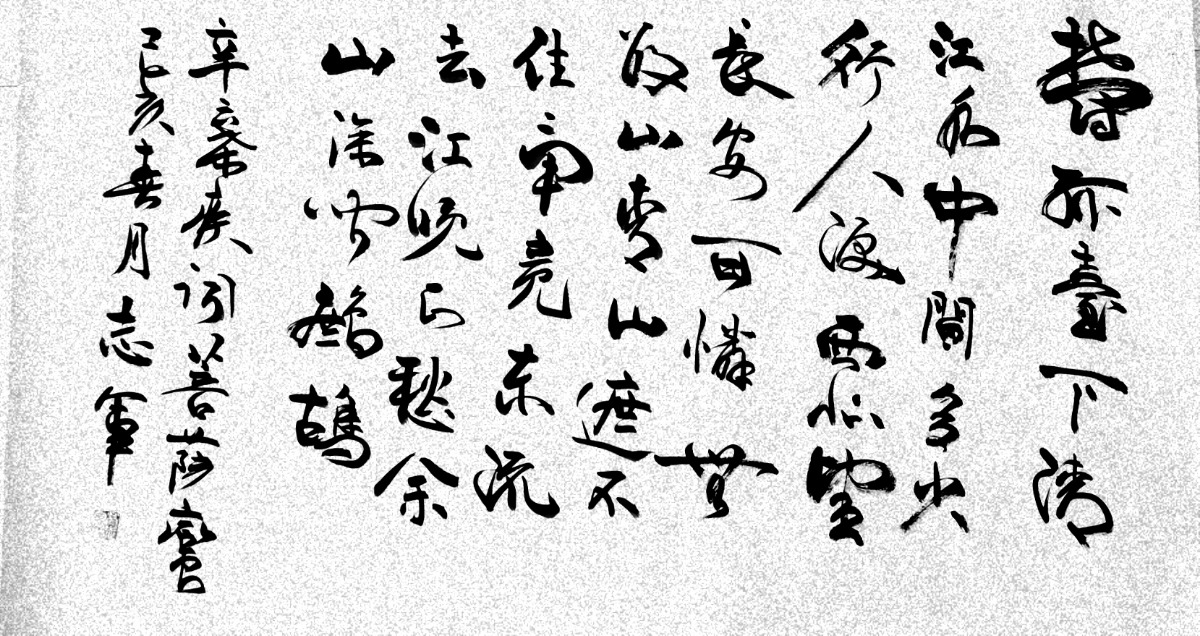 鬱孤臺下清
江水中間多少
行人淚西北望
長安可憐無
數山青山遮不
住畢竟東流
去江晚正愁余
山深聞鷓鴣
辛棄疾詞菩薩蠻
己亥春月志軍